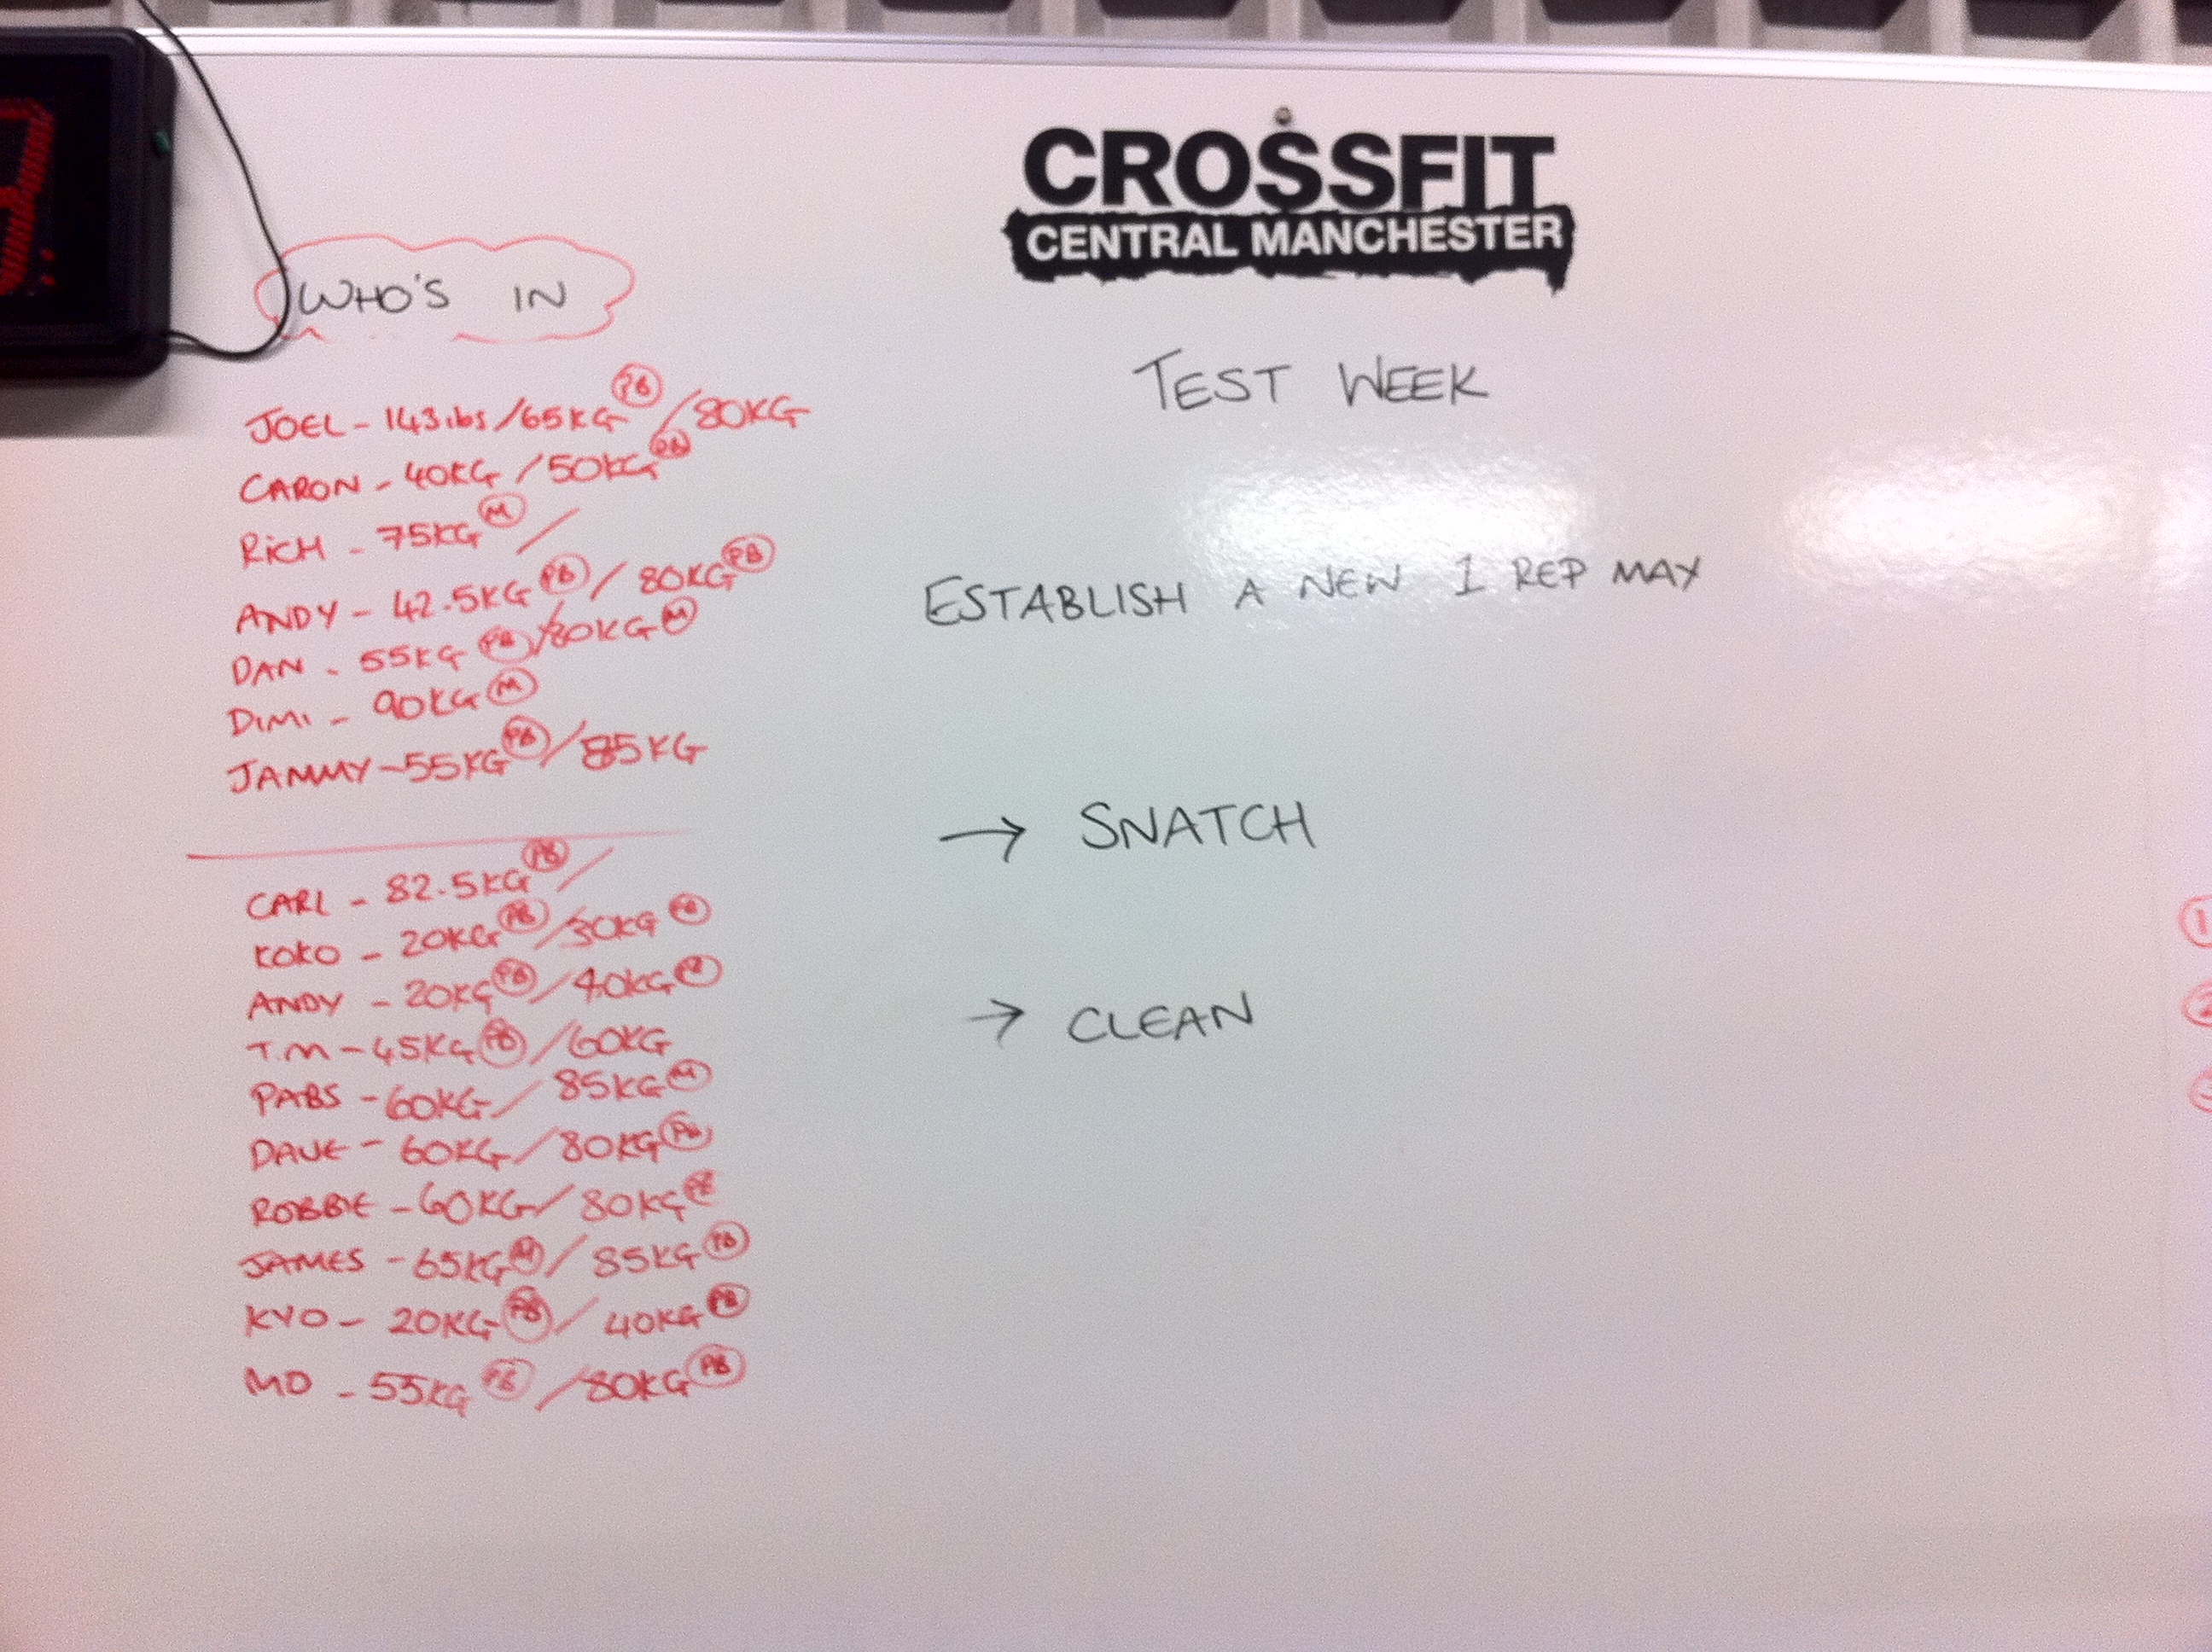 CROSSFIT
CENTRAL MANCHESTER
WHO'S IN
JOEL - 143lbs/65KG PB /80KG
CARON - 40KG /50KG PB
RICH - 75KG M /
ANDY - 42.5KG PB / 80KG PB
DAN - 55KG PB /80KG M
DIMI - 90KG M
JAMMY - 55KG PB /85KG
CARL - 82.5KG PB /
KOKO - 20KG PB /30KG PB
ANDY - 20KG PB /40KG
T.M - 45KG PB /60KG
PABS - 60KG / 85KG M
DAVE - 60KG / 80KG PB
ROBBIE - 60KG / 80KG PB
JAMES - 65KG M / 85KG PB
KYO - 20KG PB / 40KG PB
MO - 55KG PB /80KG PB
TEST WEEK
ESTABLISH A NEW 1 REP MAX
→ SNATCH
→ CLEAN
1
2